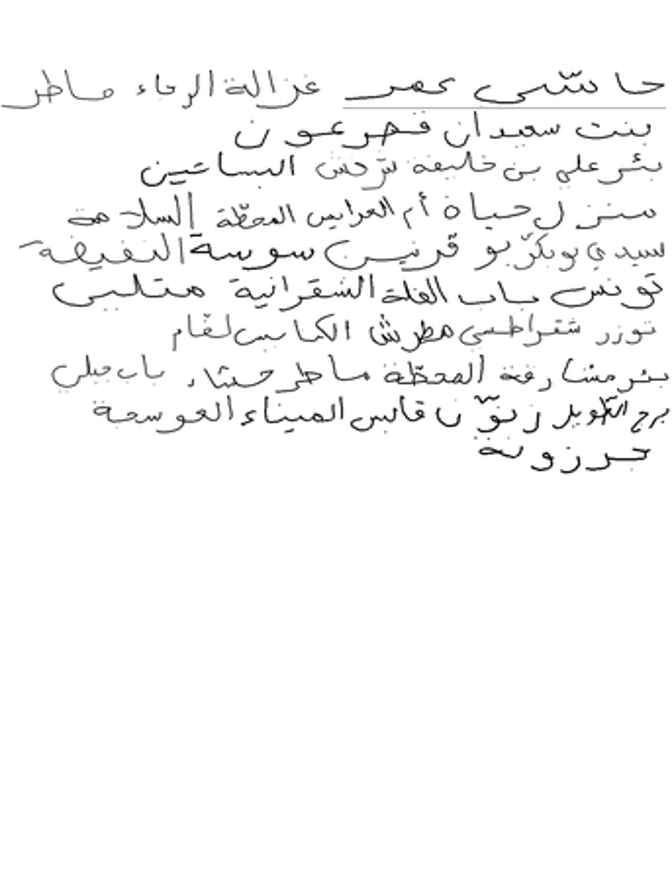 حاشي عمر غزالة الرماء ماطر
بنت سعيدان فم رعون
بئر علي بن خليفة نرجس البساتين
منزل حياة أم العرايس المحطّة السلامة
سيدي بوبكر بو قرنين سوسة النفيضة
تونس باب الفلة الشقرانية متلبي
توزر شقراطسي مطرش الكبايس لقام
بئر مشارقة المحطّة ماطر حشاد باب جبلي
برج الطويل زنّوّن قابس الميناء العوسجة
جرزونة